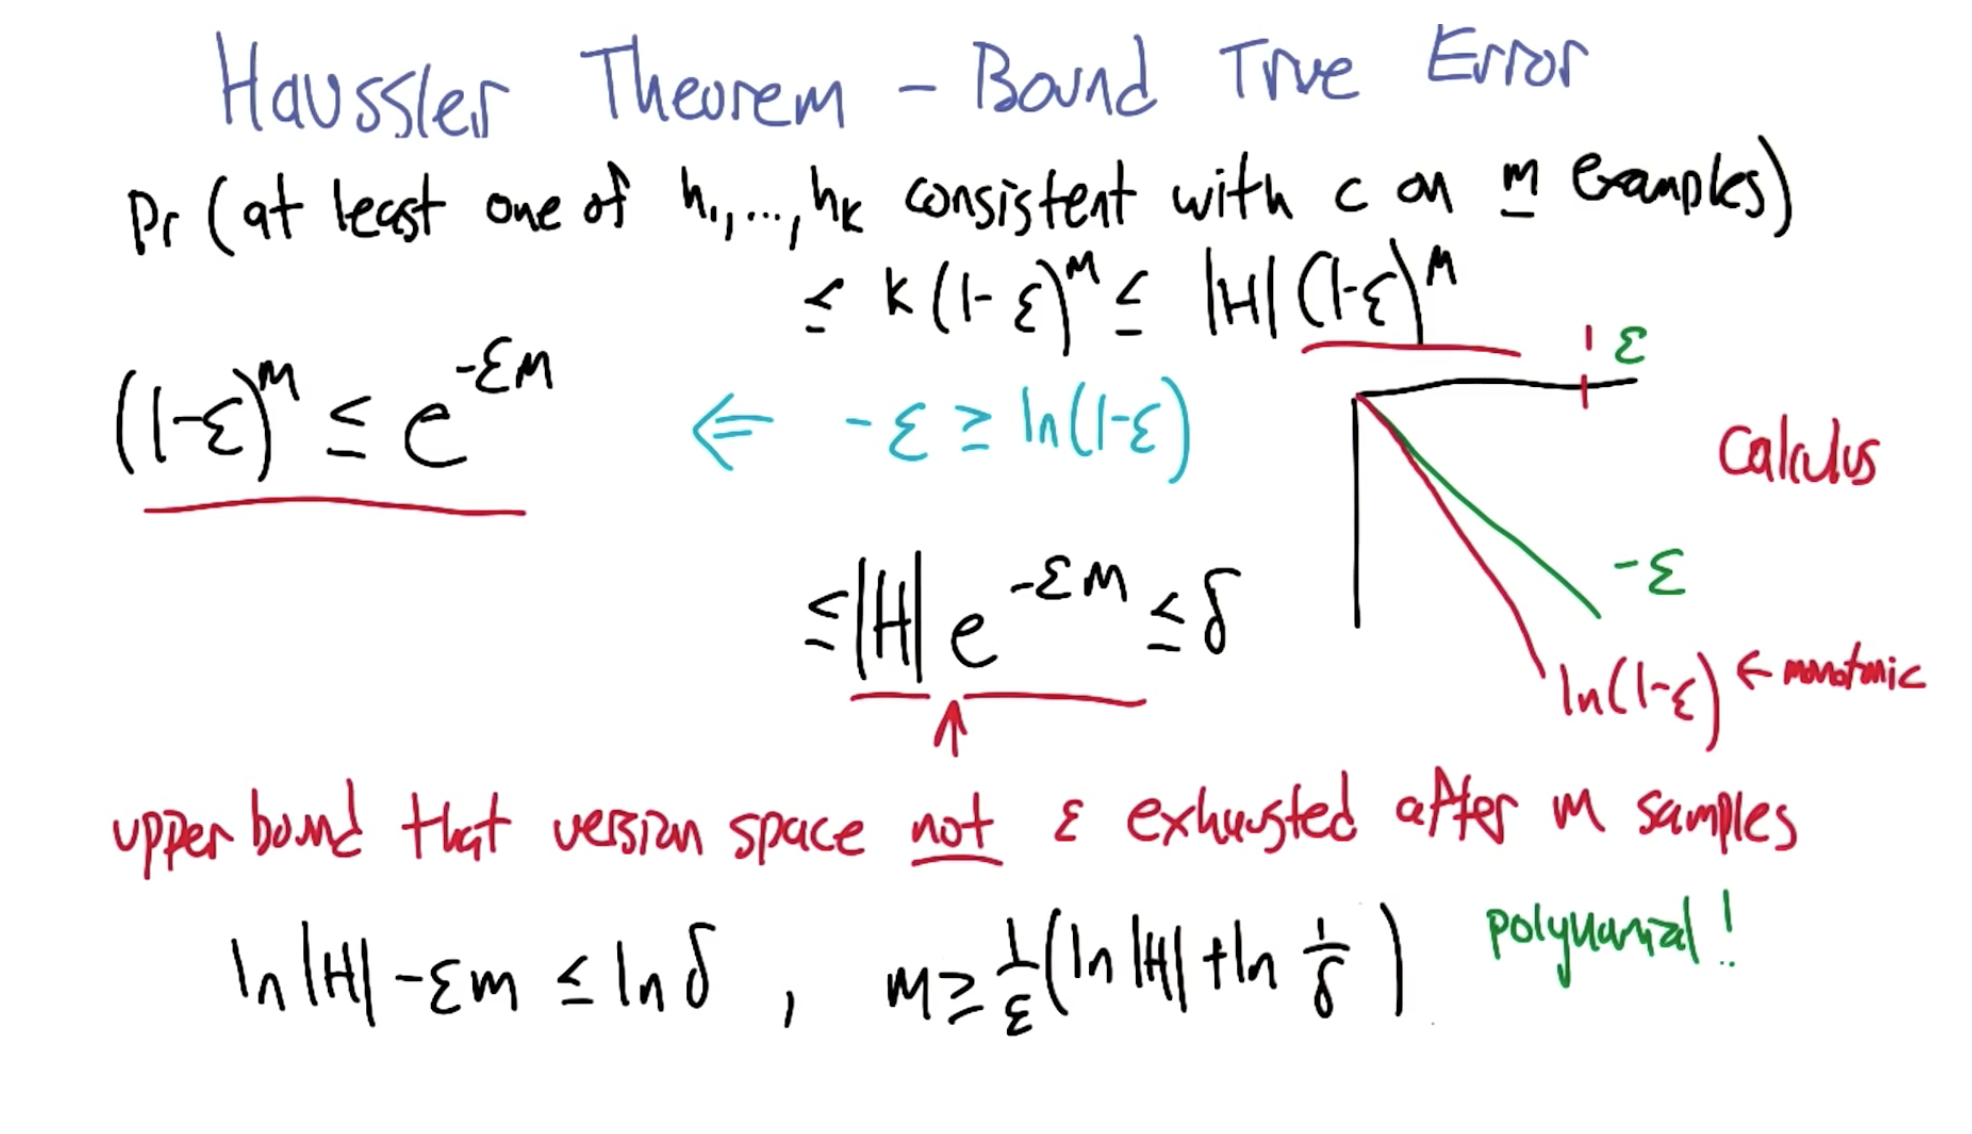 Haussler Theorem – Bound True Error
Pr (at least one of h₁,...,hₖ consistent with c on m examples)
≤ k(1-ε)ᵐ ≤ |H|(1-ε)ᵐ
1 ε
(1-ε)ᵐ ≤ e^(-εm) ⇐ -ε ≥ ln(1-ε)
Calculus
-ε
≤ |H| e^(-εm) ≤ δ
ln(1-ε) ← monotonic
↑
upper bound that version space not ε exhausted after m samples
ln|H| - εm ≤ ln δ , m ≥ 1/ε (ln|H| + ln 1/δ) polynomial!